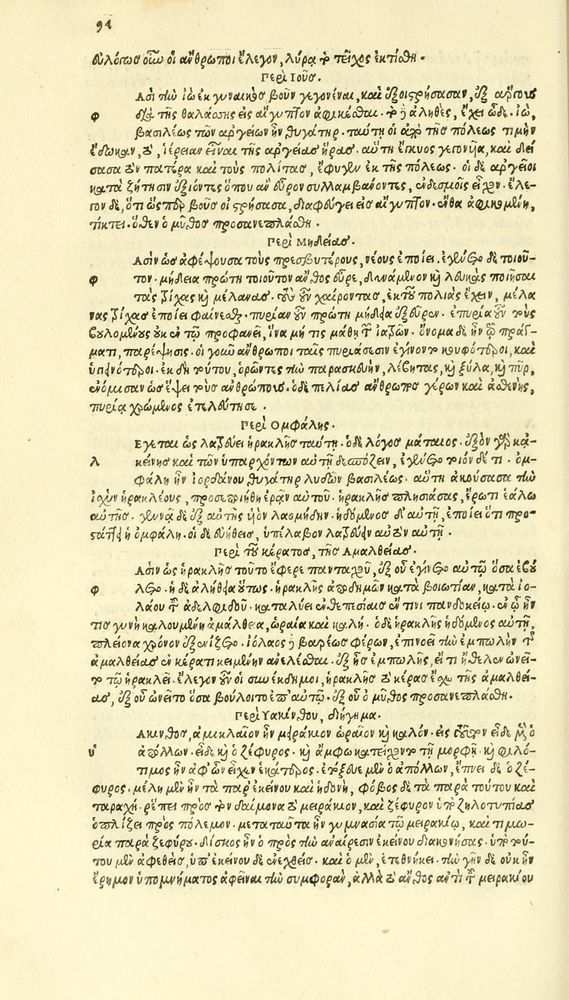 94
δυλόπσο οἷον οἱ ἄνθρωποι ἔλεγον, λύρα τὸ τεῖχος ἐκτίσθη.
Περὶ Ἰοῦς.
Ασὶ τὴν ἰὼ ἐκ γυναικὸς βοῦν γεγονέναι, καὶ ἐξοιστρήσασαν, ἐξ ἄργους
φ διὰ τῆς θαλάσσης εἰς αἴγυπτον ἀφικέσθαι. τὸ δ ἀληθὲς, ἔχει ὧδε. ἰὼ,
βασιλέως τῶν ἀργείων ἦν θυγάτηρ. ταύτῃ οἱ ἀπὸ τῆς πόλεως τιμὴν
ἔδωκαν, τὸ, ἱέρειαν εἶναι τῆς ἀργείας ἥρας. αὕτη ἔγκυος γενομένη, καὶ δεί
σασα τὸν πατέρα καὶ τοὺς πολίτας, ἔφυγεν ἐκ τῆς πόλεως. οἱ δὲ ἀργεῖοι
κατὰ ζήτησιν ἐξιόντες ὅπου ἂν εὗρον συλλαμβάνοντες, ἐν δεσμοῖς εἶχον. ἔλε-
γον δὲ, ὅτι ὥσπερ βοῦς οἰστρήσασα, διαφεύγει εἰς αἴγυπτον. ἔνθα ἀφικομένη,
τίκτει. ὅθεν ὁ μῦθος προσανεπλάσθη.
Περὶ Μηδείας.
Ασὶν ὡς ἀφέψουσα τοὺς πρεσβυτέρους, νέους ἐποίει. ἐγένετο δὲ τοιοῦ-
φ τον. μήδεια πρώτη τοιοῦτον ἄνθος εὗρε, δυνάμενον καὶ λευκὰς ποιῆσαι
τὰς τρίχας καὶ μελαίνας. τοὺς οὖν χαίροντας, ἐκ τοῦ πολιὰς ἔχειν, μελαί
νας τρίχας ἔχοντας ἐποίει φαίνεσθαι. πυρίαν οὖν πρώτη μήδεια ἐξεῦρεν. ἐπυρία οὖν τοὺς
βουλομένους οὐκ ἐν τῷ προφανεῖ, ἵνα μή τις μάθῃ τῶν ἰατρῶν. ὄνομα δὲ ἦν τῷ πράγ-
ματι, παρέψησις. οἱ γοῦν ἄνθρωποι ταῖς πυριάσεσιν ἐγίνοντο κουφότεροι, καὶ
ὑγιεινότεροι. ἐκ δὲ τούτου, ὁρῶντες τὴν παρασκευὴν, λέβητας, καὶ ξύλα, καὶ πῦρ,
ἐνόμισαν ὡς ἕψει τοὺς ἀνθρώπους. ὁ δὲ πελίας ἄνθρωπος γέρων καὶ ἀσθενὴς,
πυρίᾳ χρώμενος ἐτελεύτησε.
Περὶ Ομφάλης.
Εγεται ὡς λατρεύει ἡρακλῆς ταύτῃ. ὁ δὲ λόγος μάταιος. ἐξὸν γὰρ κἀ-
λ κείνης καὶ τῶν ὑπαρχόντων αὐτῇ δεσπόζειν, ἐγένετο τοιόνδέ τι. ὀμ-
φάλη ἦν ἰορδάνου θυγάτηρ λυδῶν βασιλέως. αὕτη ἀκούσασα τὴν
ἰσχὺν ἡρακλέους, προσεποιήθη ἐρᾶν αὐτοῦ. ἡρακλῆς πλησιάσας, ἔρωτι ἑάλω
αὐτῆς. γεννᾷ δὲ ἐξ αὐτῆς υἱὸν λαομήδην. ἡδόμενος δ' αὐτῇ, ἐποίει ὅτι προσ-
τάττοι ἡ ὀμφάλη. οἱ δὲ εὐήθεις, ὑπέλαβον λατρεύειν αὐτὸν αὐτῇ.
Περὶ τοῦ κέρατος, τῆς Αμαλθείας.
Ασὶν ὡς ἡρακλῆς τοῦτο ἔφερε πανταχοῦ, ἐξ οὗ ἐγίνετο αὐτῷ ὅσα ἐβού
φ λετο. ἡ δὲ ἀλήθεια οὕτως. ἡρακλῆς ἀποδημῶν κατὰ βοιωτίαν, κατὰ ἰο-
λάου τοῦ ἀδελφιδοῦ. καταλύει ἐν θεσπιαῖς ἔν τινι πανδοκείῳ. ἐν ᾧ ἦν
τις γυνὴ καλουμένη ἀμάλθεια, ὡραία καὶ καλή. ὁ δὲ ἡρακλῆς ἡδόμενος αὐτῇ,
πλείονα χρόνον ἐξενίζετο. ἰόλαος δὲ βαρέως φέρων, ἐπινοεῖ τὴν ἐμπολὴν τῆς
ἀμαλθείας ἐν κέρατι κειμένην ἀνελέσθαι. ἐξ ἧς ἐμπολῆς, εἴ τι ἤθελεν ὠνεῖ-
το τῷ ἡρακλεῖ. ἔλεγον οὖν οἱ συνέκδημοι, ἡρακλῆς τὸ κέρας ἔχει τῆς ἀμαλθεί-
ας, ἐξ οὗ ὠνεῖτο ὅσα βούλοιτο ἐπ' αὐτῷ. ἐξ οὗ ὁ μῦθος προσανεπλάσθη.
Περὶ Υακίνθου, διήγημα.
Ακινθος, ἀμυκλαῖον ἦν μειράκιον ὡραῖον καὶ καλόν. εἰς τοῦτον εἶδε μὲν ὁ
υ ἀπόλλων. εἶδε καὶ ὁ ζέφυρος. καὶ ἄμφω κατείχοντο τῇ μορφῇ. καὶ φιλό-
τιμος ἦν ἀφ' ὧν εἶχεν ἑκάτερος. ἐτόξευε μὲν ὁ ἀπόλλων, ἔπνει δὲ ὁ ζέ-
φυρος. μέλη μὲν τὰ παρ' ἐκείνου καὶ ἡδονὴ, φόβος δὲ τὰ παρὰ τούτου καὶ
ταραχή. ῥέπει πρὸς τὸν δαίμονα τὸ μειράκιον, καὶ ζέφυρον ὑπὸ ζηλοτυπίας
ὁπλίζει πρὸς πόλεμον. μετὰ ταῦτα ἦν γυμνασία τῷ μειρακίῳ, καὶ τιμω-
ρία παρὰ ζεφύρου. δίσκος ἦν ὁ πρὸς τὴν ἀναίρεσιν ἐκείνου διακονήσας. ὑπὸ τού-
του μὲν ἀφεθεὶς, ὑπ' ἐκείνου δὲ ἐνεχθείς. καὶ ὁ μὲν, ἐτεθνήκει. τὴν γῆν δὲ οὐκ ἦν
ἔρημον ὑπομνήματος ἀφεῖναι τὴν συμφορὰν, ἀλλὰ τὸ ἄνθος ἀντὶ τοῦ μειρακίου